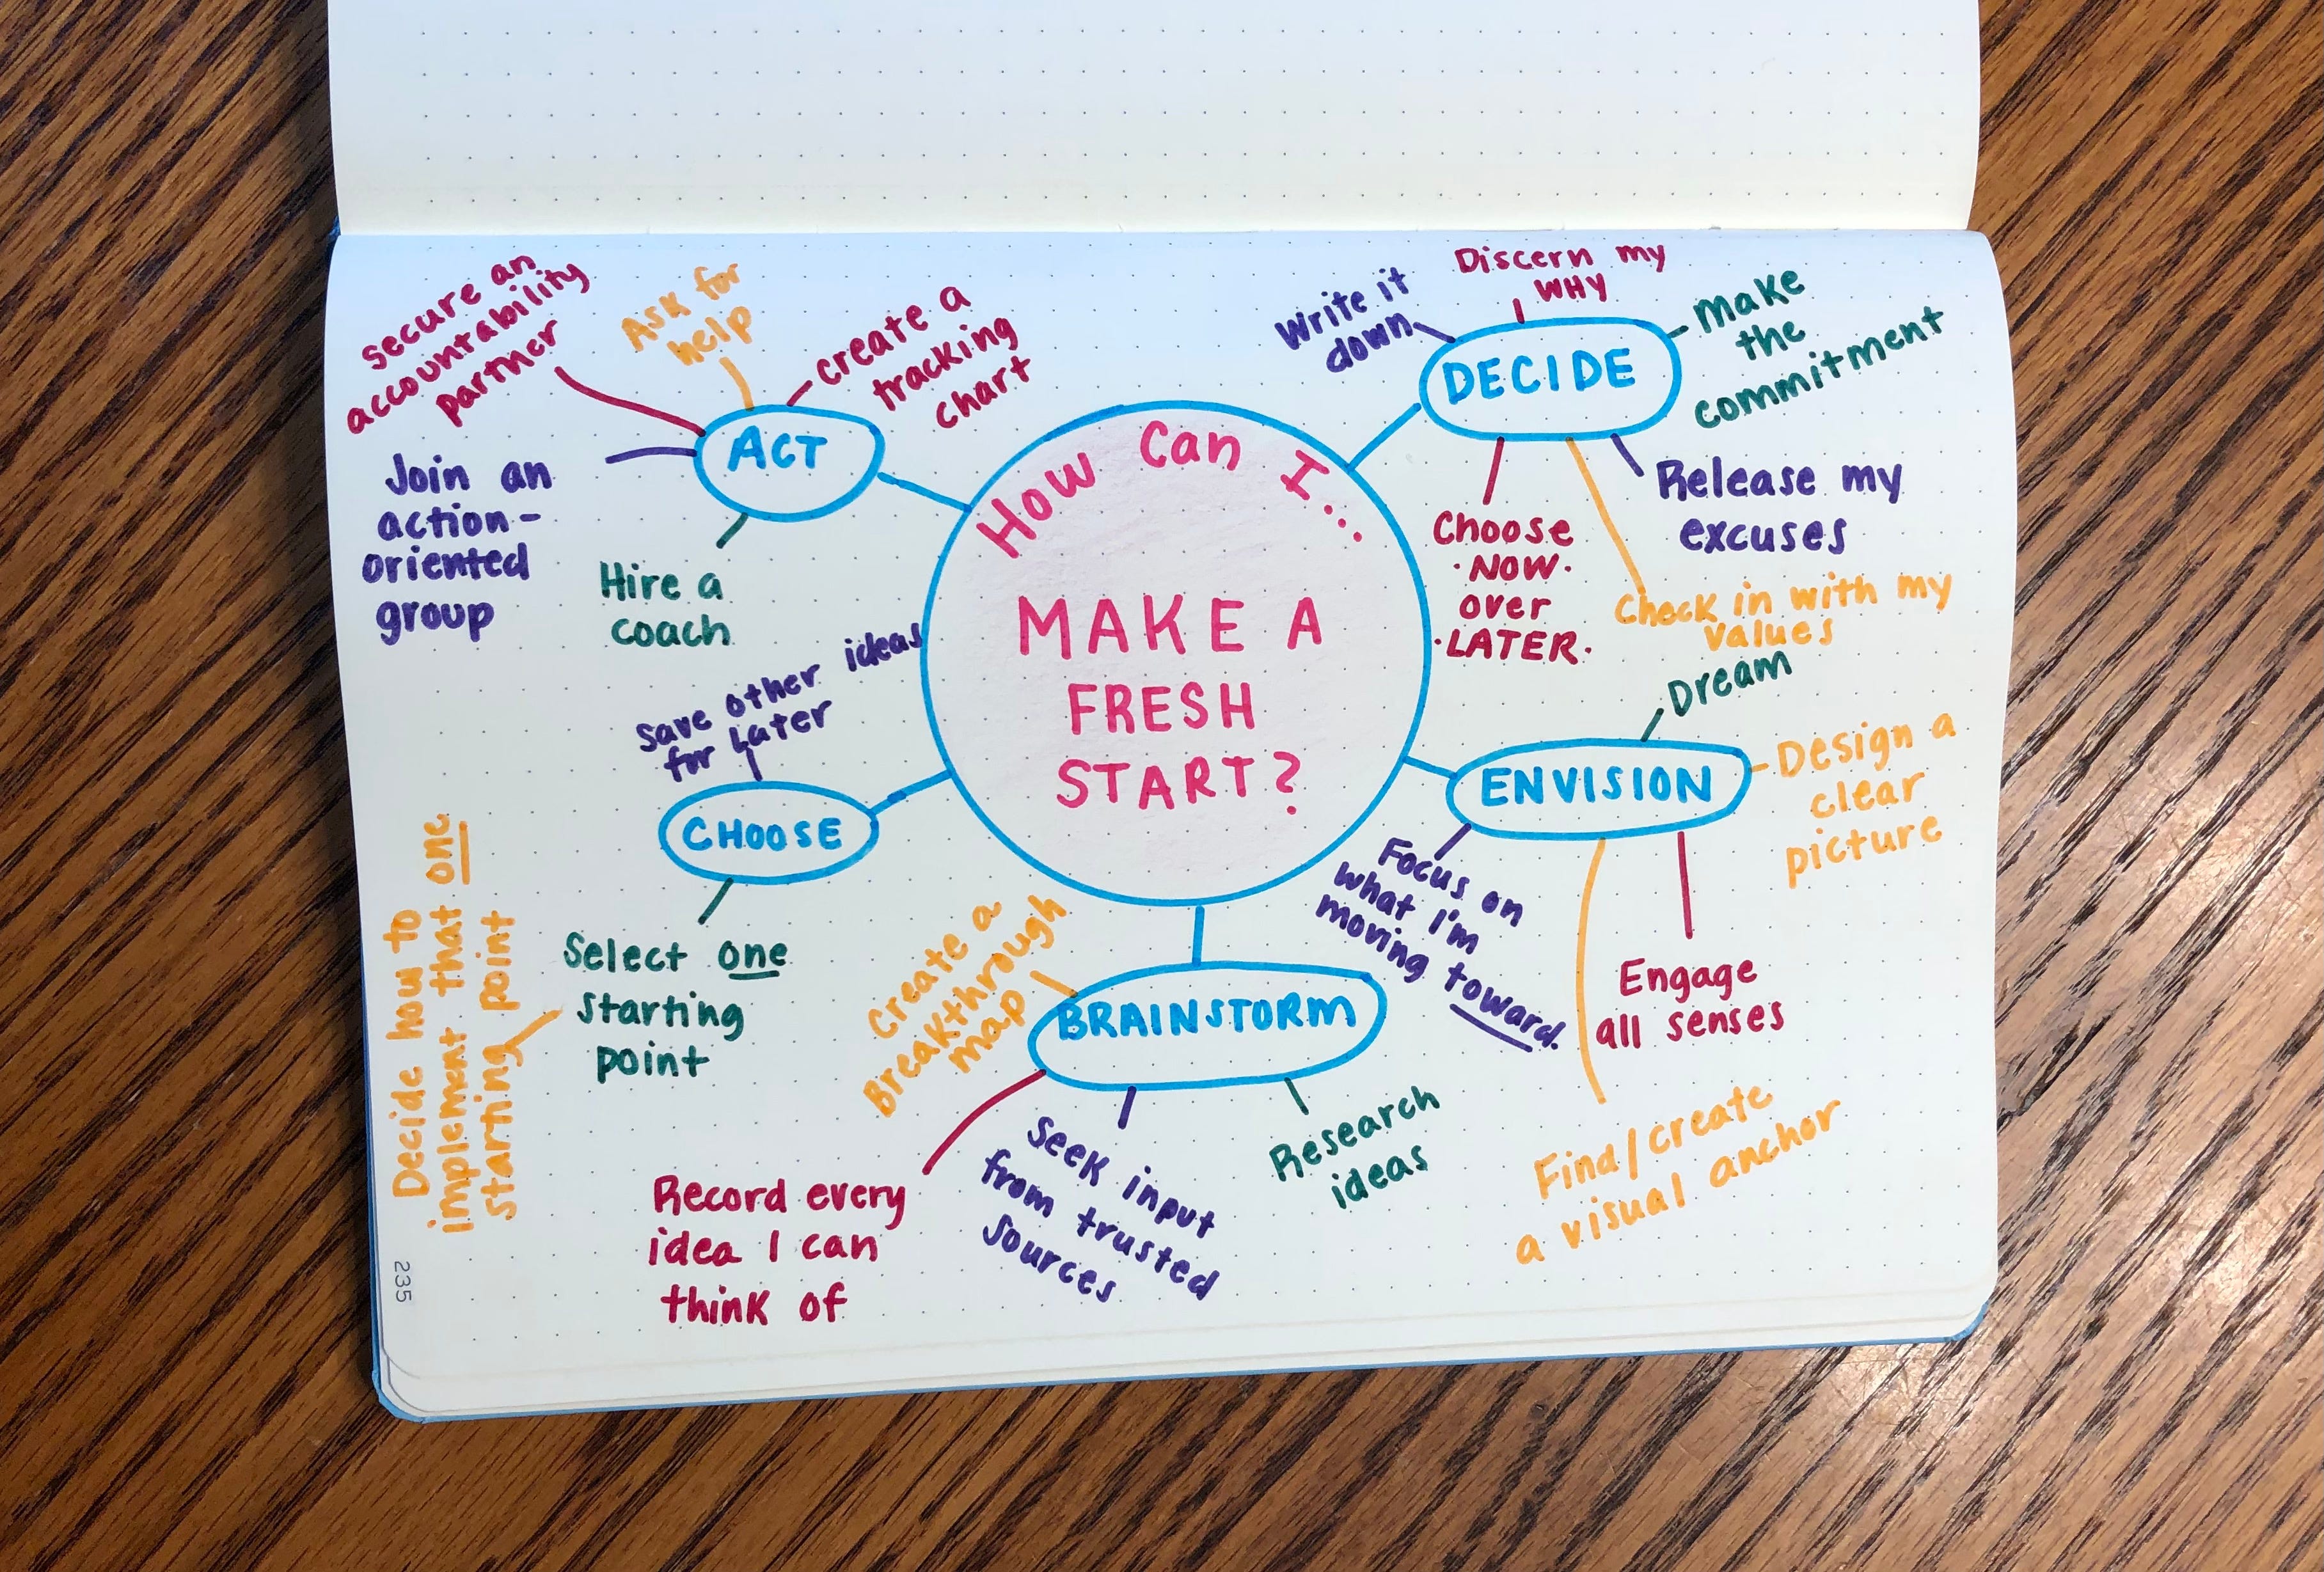 How can I...
MAKE A
FRESH
START?
DECIDE
Write it
down
Discern my
WHY
Make
the
commitment
Release my
excuses
Check in with my
values
Choose
·NOW·
over
·LATER·
ENVISION
Dream
Design a
clear
picture
Engage
all senses
Find/create
a visual anchor
Focus on
what I'm
moving toward.
BRAINSTORM
Research
ideas
Seek input
from trusted
sources
Record every
idea I can
think of
Create a
Breakthrough
map
CHOOSE
Save other ideas
for Later
Select one
starting
point
Decide how to
implement that one
starting point
ACT
Hire a
coach
Join an
action-
oriented
group
secure an
accountability
partner
Ask for
help
create a
tracking
chart
235